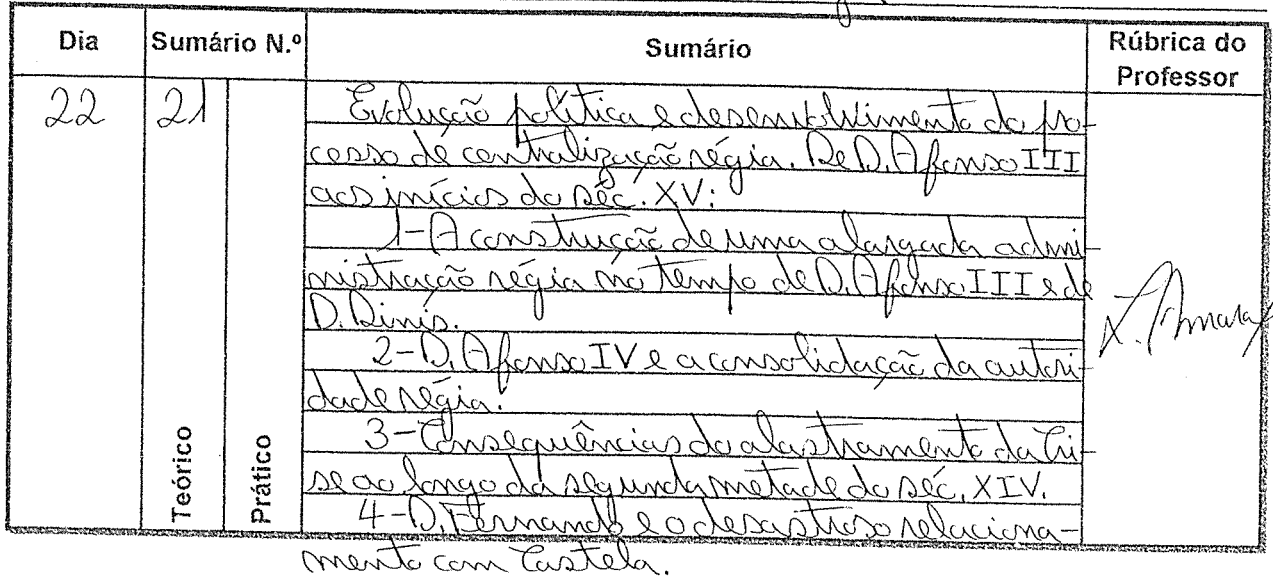 Dia Sumário N.º Sumário Rúbrica do Professor
22 21
Teórico
Prático
Evolução política e desenvolvimento do pro-
cesso de centralização régia. De D. Afonso III
aos inícios do séc. XV:
1-A construção de uma alargada admi-
nistração régia no tempo de D. Afonso III e de
D. Dinis.
2-D. Afonso IV e a consolidação da autori-
dade régia.
3-Consequências do alastramento da Cri-
se ao longo da segunda metade do séc. XIV.
4-D. Fernando e o desastroso relaciona-
mento com Castela.
L. Amaral